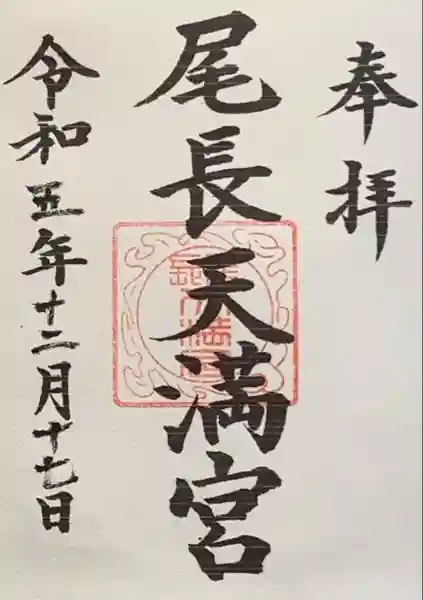 奉拝
尾長天満宮
令和五年十二月十七日